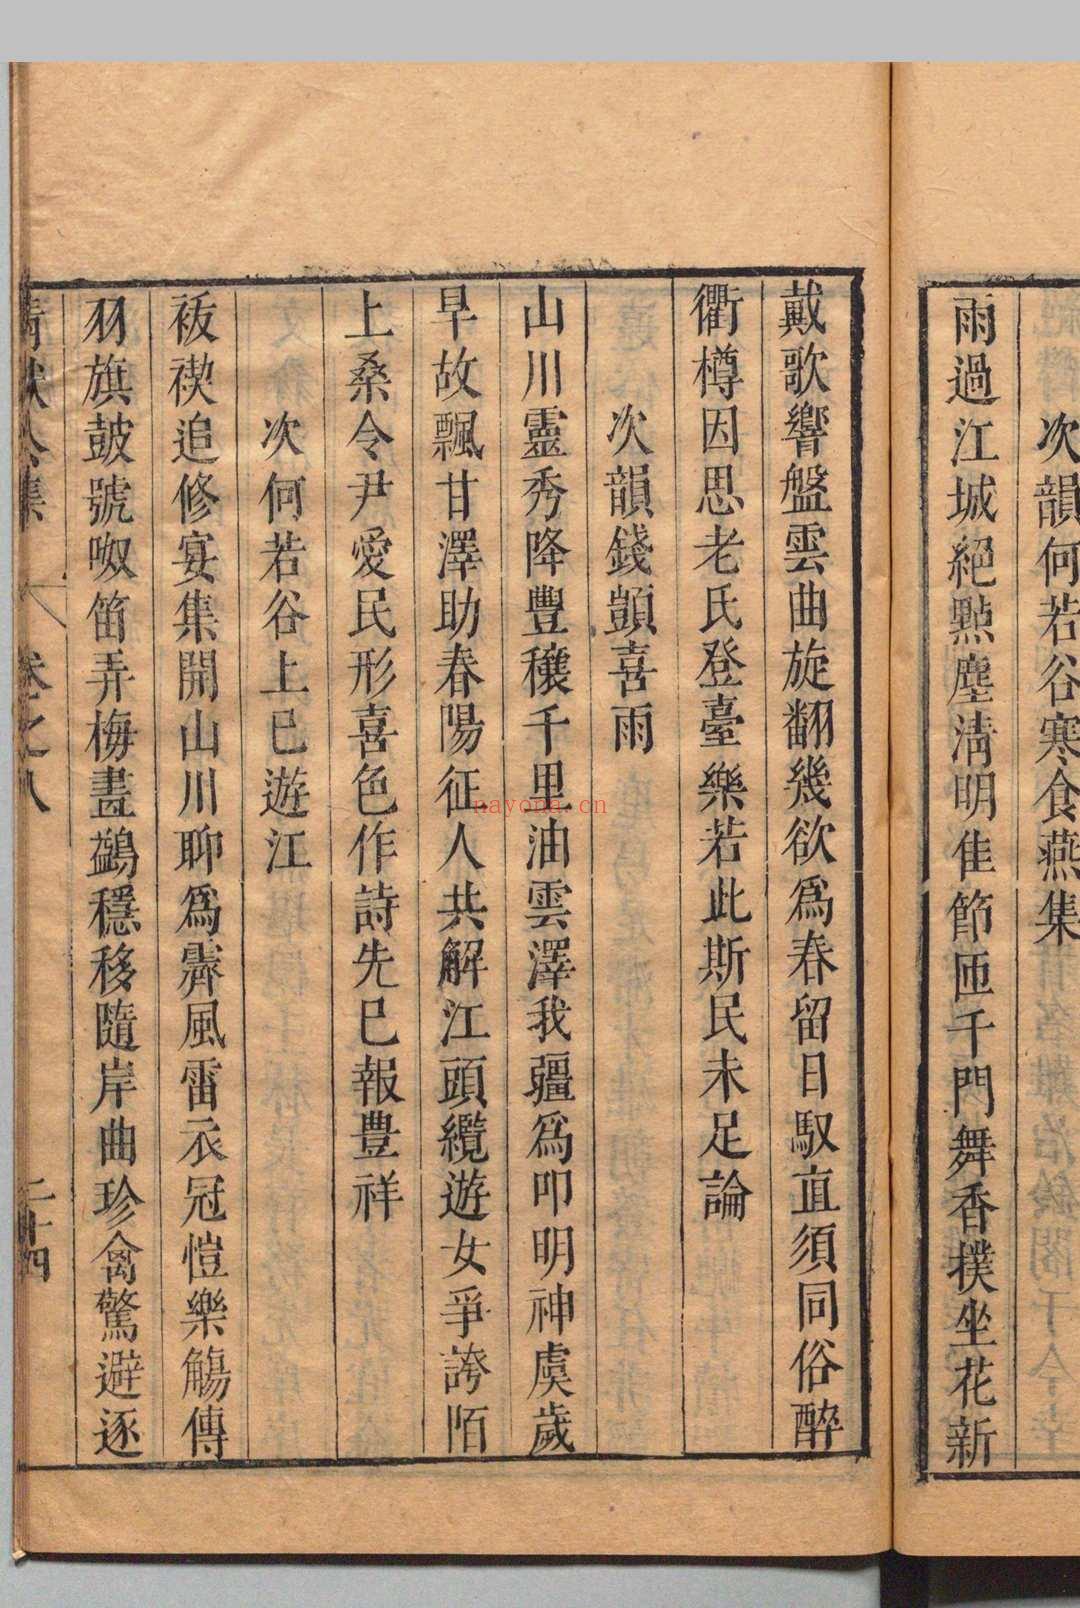 次韻何若谷寒食燕集
雨過江城絕點塵清明佳節匝千門舞香撲坐花新
戴歌響盤雲曲旋翻幾欲為春留日馭直須同俗醉
衢樽因思老氏登臺樂若此斯民未足論
次韻錢顗喜雨
山川靈秀降豐穰千里油雲澤我疆為叩明神虞歲
旱故飄甘澤助春陽征人共解江頭纜遊女爭誇陌
上桑令尹愛民形喜色作詩先巳報豊祥
次何若谷上巳遊江
袚禊追修宴集開山川聊為霽風雷衣冠愷樂觴傳
羽旗鼓號呶笛弄梅畫鷁穩移隨岸曲珍禽驚避逐
清獻公集
卷之八
二十四
nayona.cn